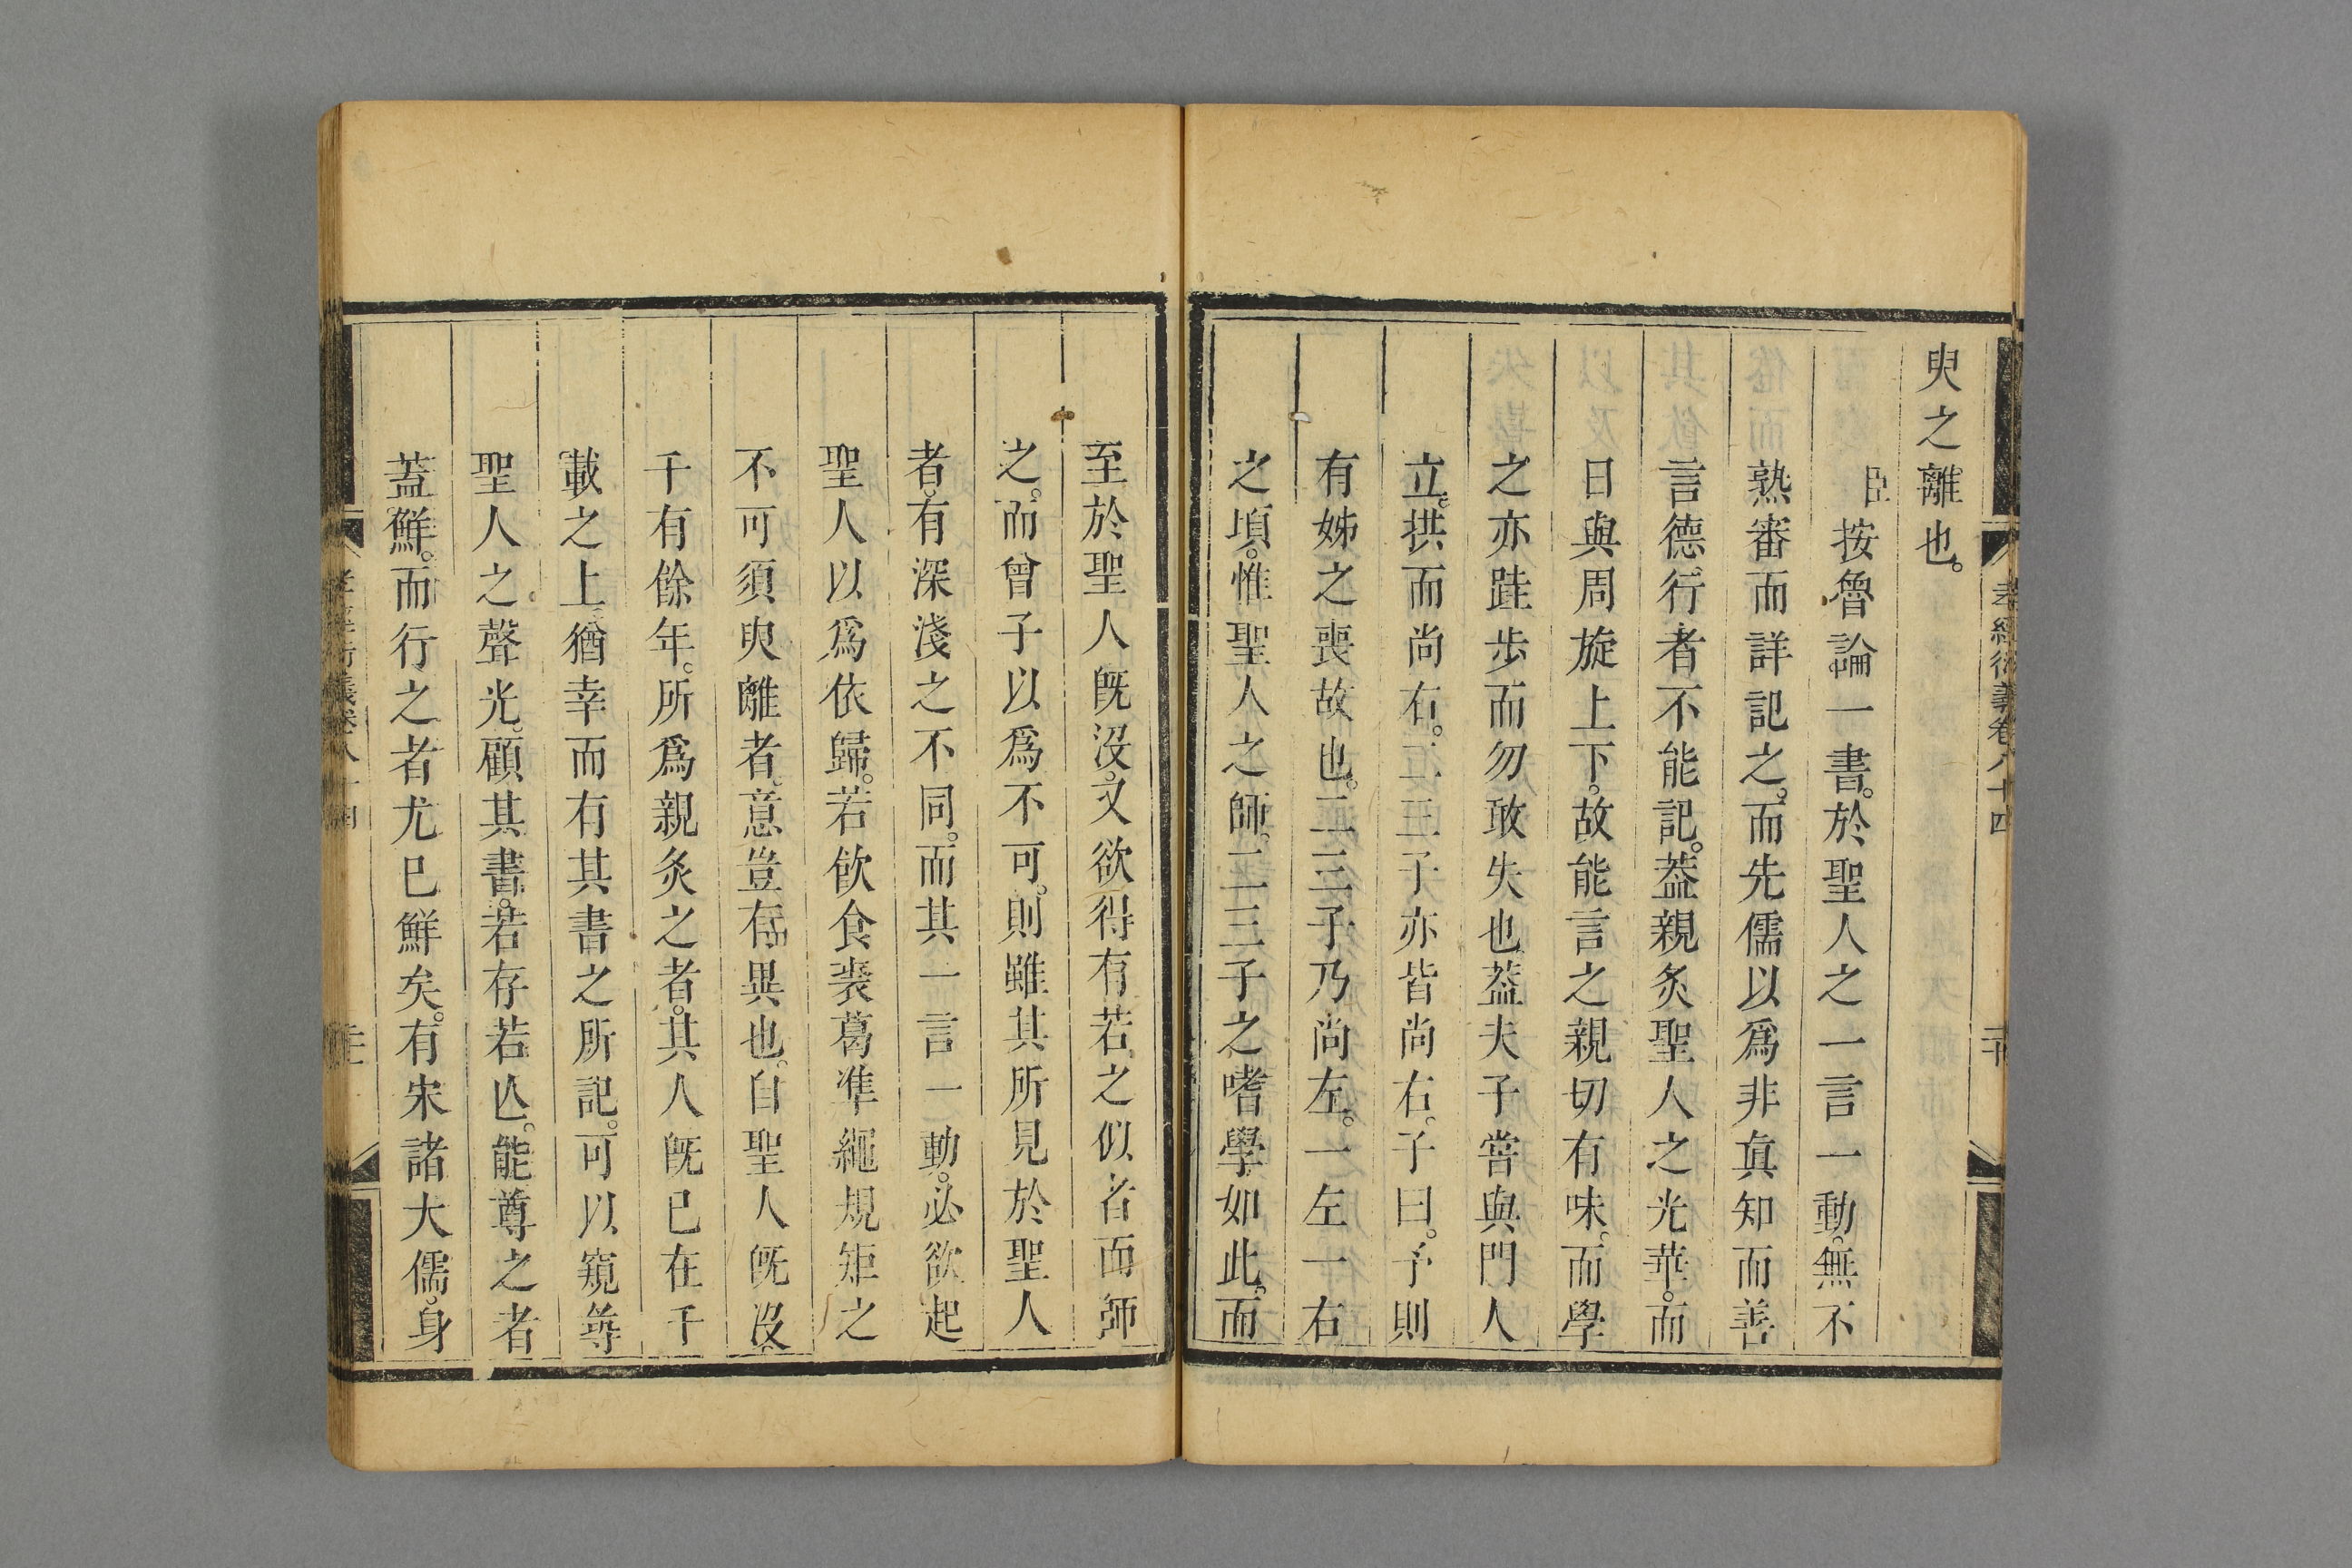 孝經衍義卷八十四
臾之離也。
臣按魯論一書。於聖人之一言一動。無不
熟審而詳記之。而先儒以爲非眞知而善
言德行者不能記。葢親炙聖人之光華。而
日與周旋上下。故能言之親切有味。而學
之亦跬步而勿敢失也。葢夫子嘗與門人
立。拱而尚右。二三子亦皆尚右。子曰。予則
有姊之喪故也。二三子乃尚左。一左一右
之頃。惟聖人之師。二三子之嗜學如此。而
至於聖人旣沒。又欲得有若之似者而師
之。而曾子以爲不可。則雖其所見於聖人
者。有深淺之不同。而其一言一動。必欲起
聖人以爲依歸。若飮食裘葛準繩規矩之
不可須臾離者。意豈有異也。自聖人旣沒
千有餘年。所爲親炙之者。其人旣已在千
載之上。猶幸而有其書之所記。可以窺尋
聖人之聲光。顧其書。若存若亾。能尊之者
葢鮮。而行之者尤已鮮矣。有宋諸大儒。身